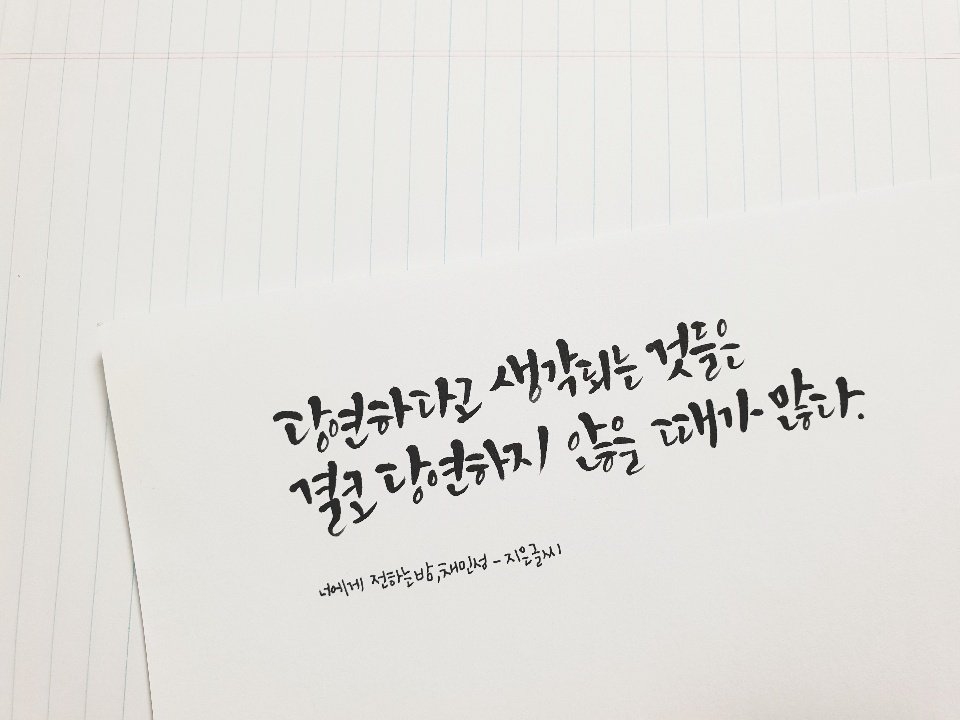 당연하다고 생각되는 것들은
결코 당연하지 않을 때가 많다.
너에게 전하는 밤, 채민성 - 지은글씨